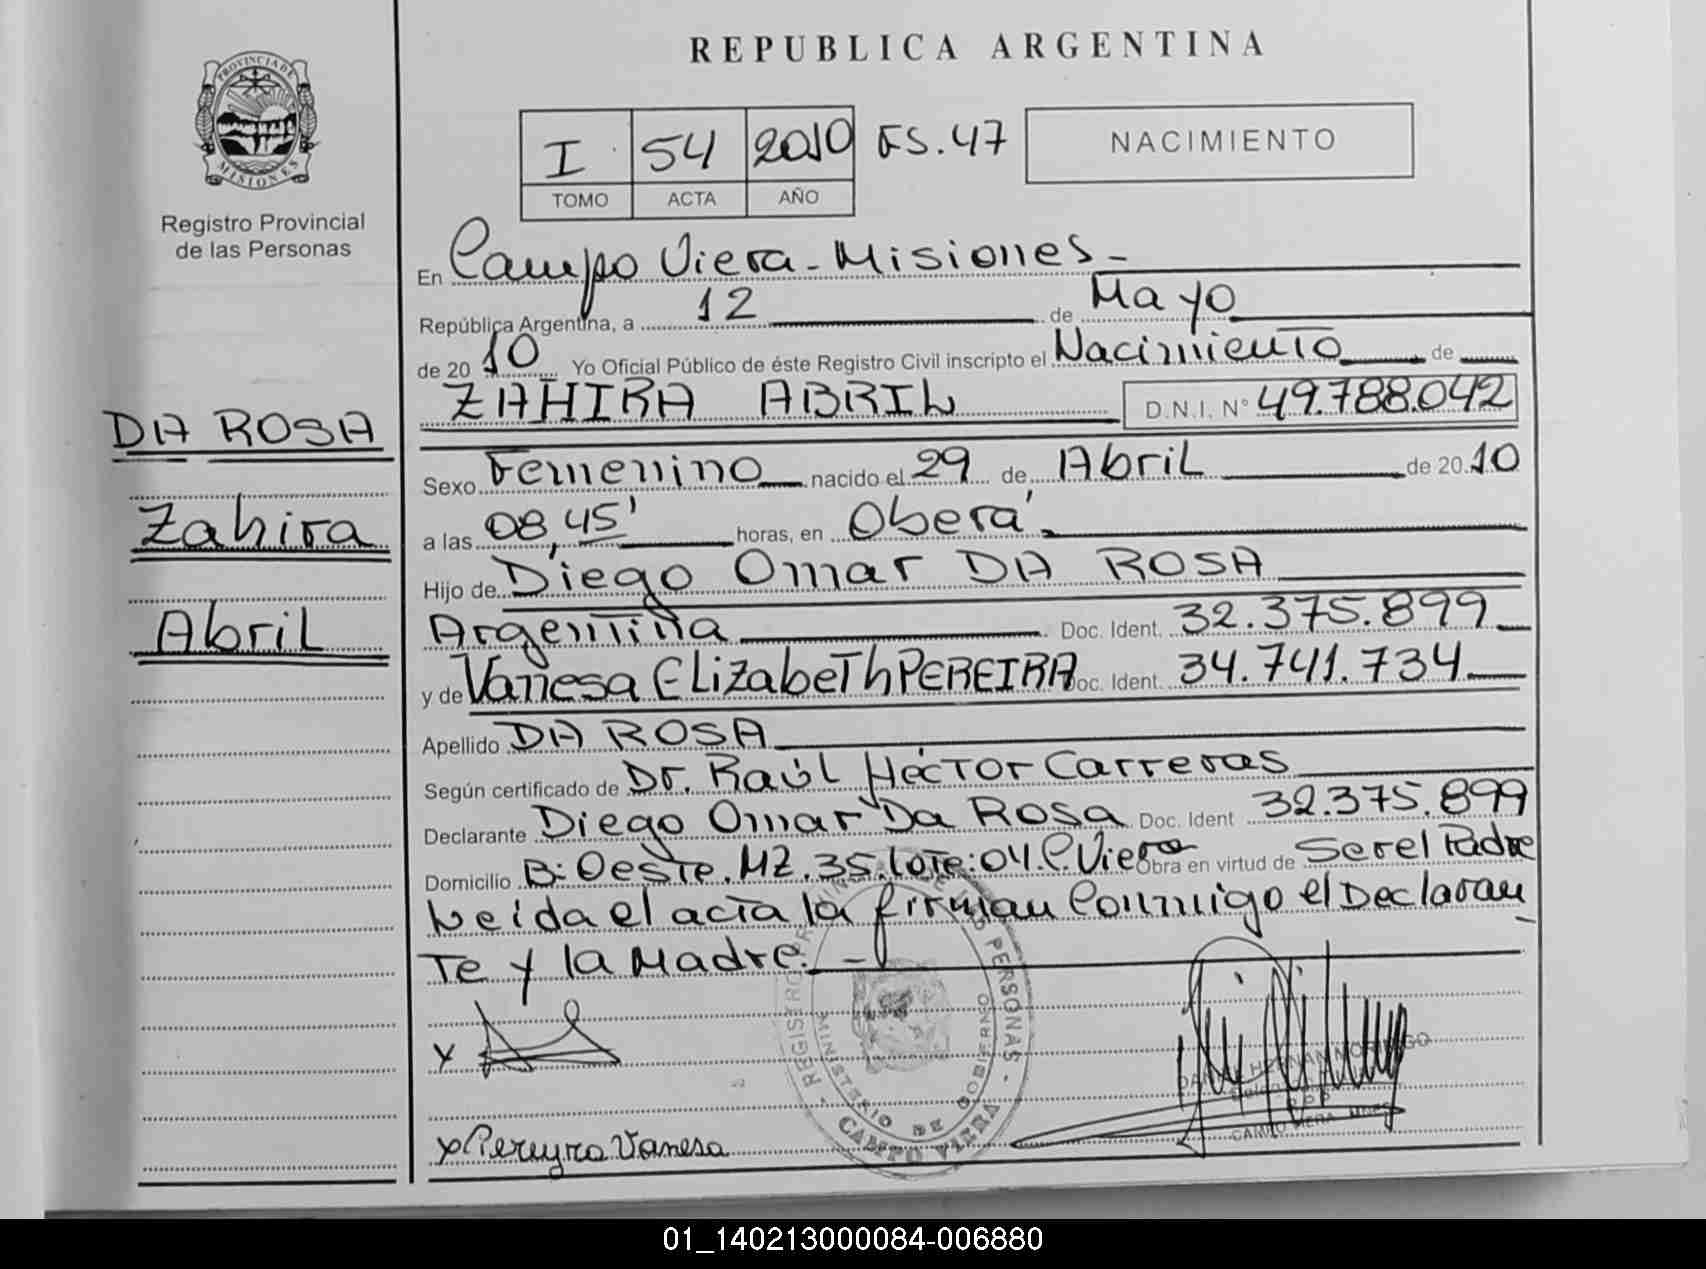 REPUBLICA ARGENTINA
PROVINCIA DE
MISIONES
Registro Provincial
de las Personas
I 54 2010 FS. 47
TOMO ACTA AÑO
NACIMIENTO
En Campo Viera - Misiones -
República Argentina, a 12 de Mayo
de 2010 Yo Oficial Público de éste Registro Civil inscripto el Nacimiento de
ZAHIRA ABRIL D.N.I. N° 49.788.042
DA ROSA
Zahira
Abril
Sexo Femenino nacido el 29 de Abril de 20 10
a las 08,45' horas, en Oberá.
Hijo de Diego Omar DA ROSA
Argentina Doc. Ident. 32.375.899
y de Vanesa Elizabeth PEREIRA Doc. Ident. 34.741.734
Apellido DA ROSA
Según certificado de Dr. Raúl Héctor Carreras
Declarante Diego Omar Da Rosa Doc. Ident 32.375.899
Domicilio B: Oeste. MZ. 35. Lote: 04. C. Viera Obra en virtud de Ser el Padre
Leída el acta la firman Conmigo el Declaran
te y la Madre. -
x Pereyra Vanesa
REGISTRO PROVINCIAL DE LAS PERSONAS
MINISTERIO DE GOBIERNO
CAMPO VIERA
CAMPO VIERA
01_140213000084-006880